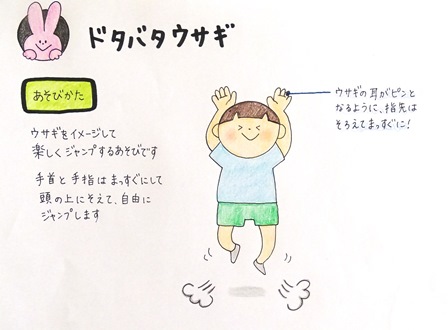 ドタバタウサギ
あそびかた
ウサギをイメージして
楽しくジャンプするあそびです
手首と手指はまっすぐにして
頭の上にそえて、自由に
ジャンプします
ウサギの耳がピンと
なるように、指先は
そろえてまっすぐに!